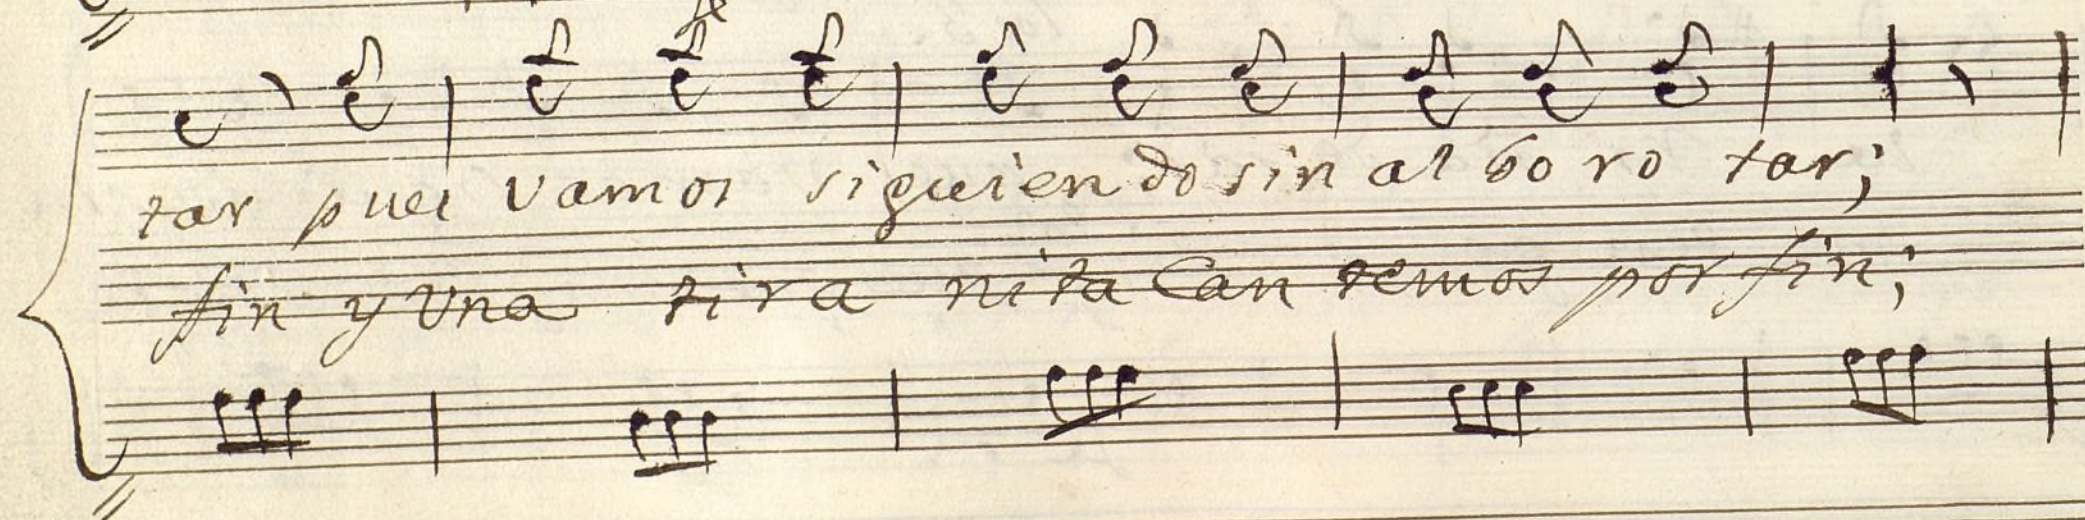 tar pues vamos siguien do sin al bo ro tar;
fin y Vna ti ra ni ta Can temos por fin;